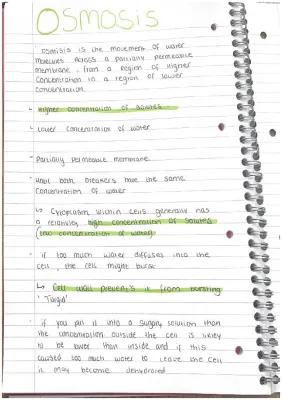 OSMOSIS
osmosis is the movement of water
molecules across a partially permeable
membrane, from a region of higher
concentration in a region of lower
concentration.
Higher concentration of solutes
Lower concentration of water
Partially permeable membrane
until both breakers have the same
concentration of water
↳ Cytoplasm within cells generally has
a relatively high concentration of solutes
(low concentration of water)
if too much water diffuses into the
cell, the cell might burst
↳ Cell wall prevent's it from bursting
'Turgid'
if you put it into a sugary solution than
the concentration outside the cell is likely
to be lower than inside and if this
caused too much water to leave the cell
it may become dehydrated